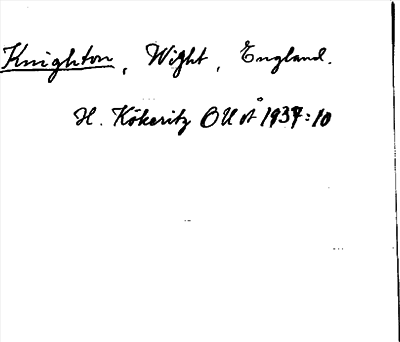 Knighton, Wight, England.
H. Kökeritz UUÅ 1937:10